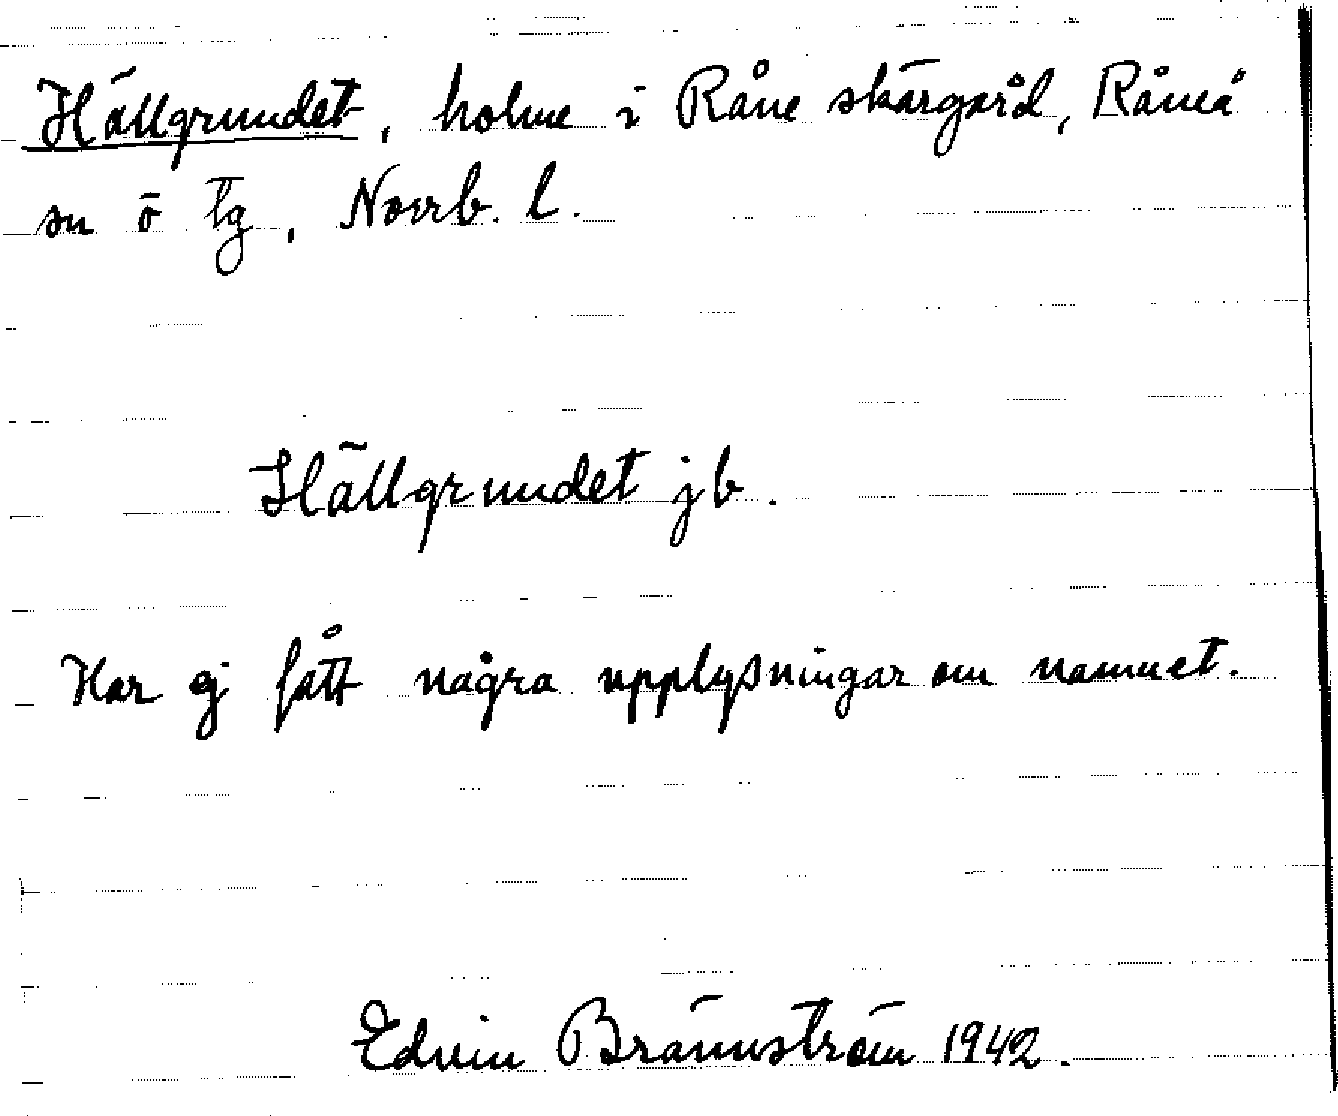 Hällgrundet, holme i Råne skärgård, Råneå
sn ö tg, Norrb. l.
Hällgrundet jb.
Har ej fått några upplysningar om namnet.
Edvin Brännström 1942.